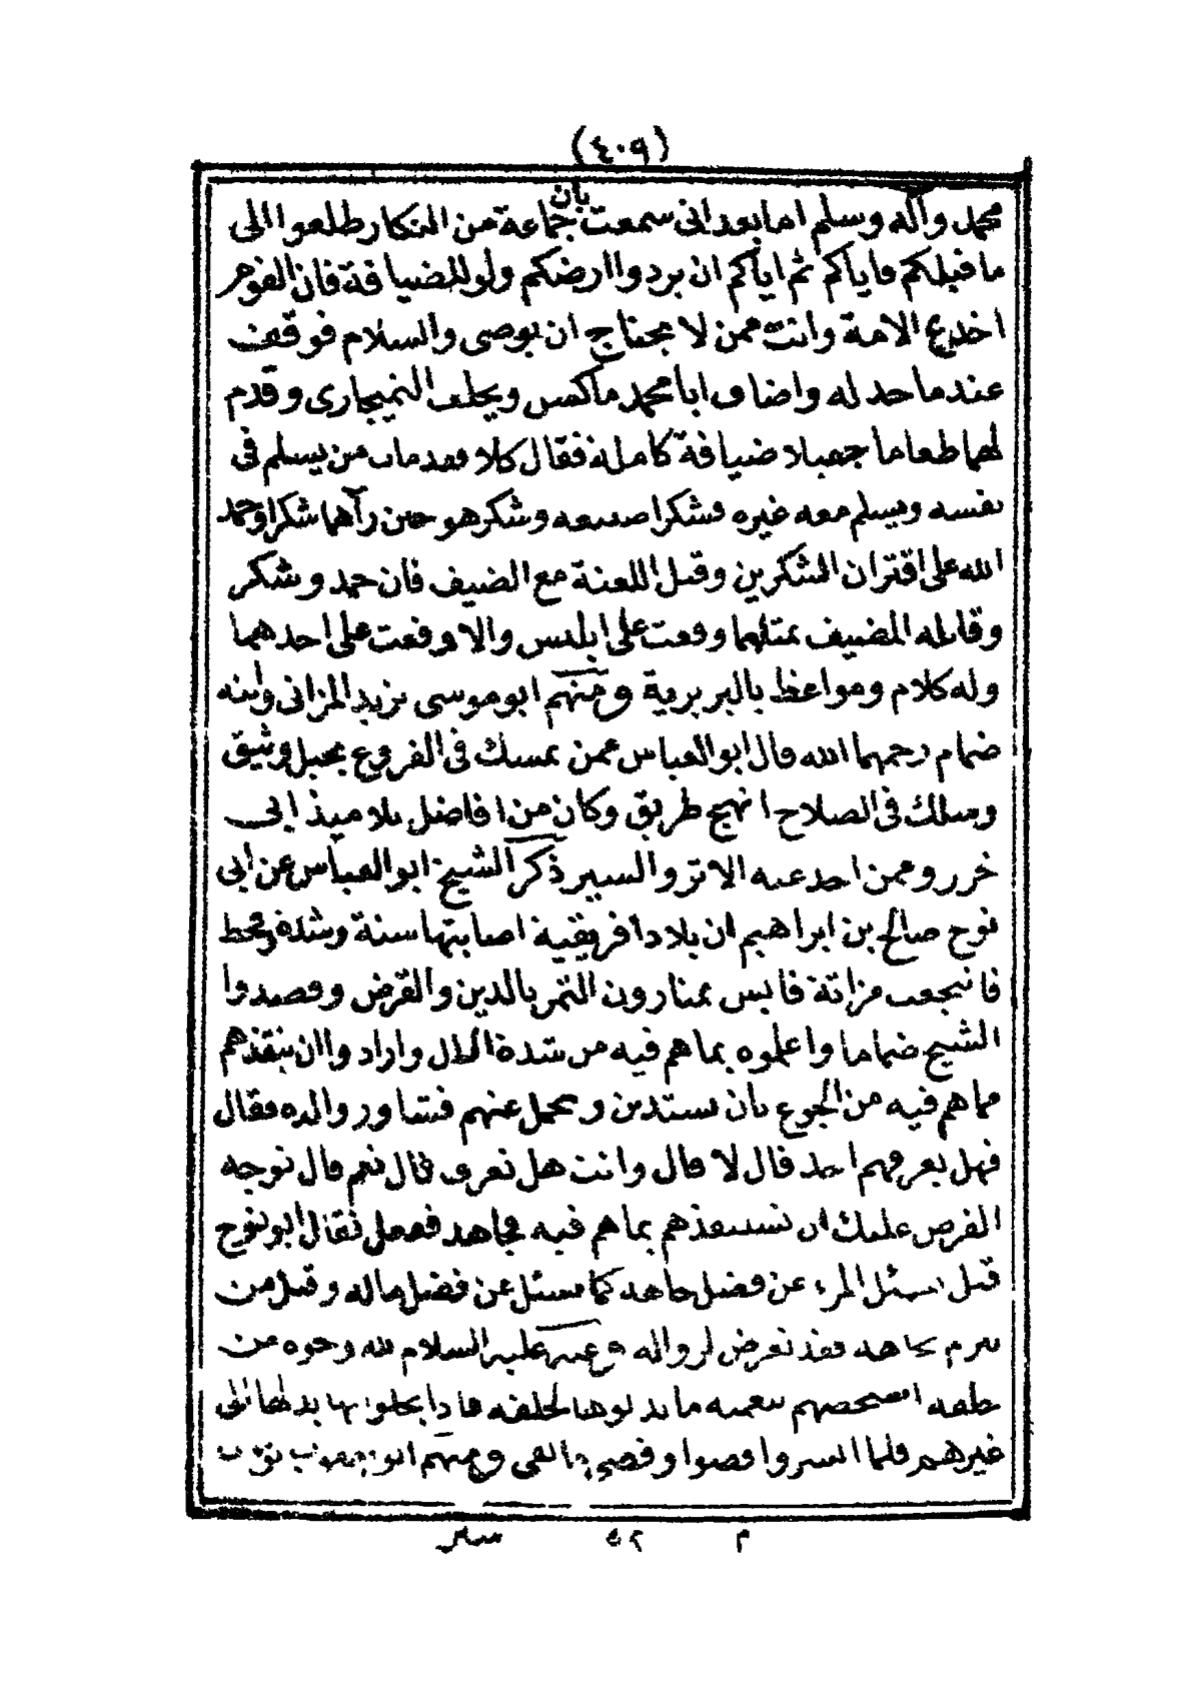 (٤٠٩)
محمد وآله وسلم اما بعد انى سمعت بان جماعة من النكار طلعوا الى
ما قبلكم فاياكم ثم اياكم ان يردوا ارضكم ولو للضيافة فان القوم
اخدع الامة وانت ممن لا يحتاج ان يوصى والسلام فوقف
عند ما حد له واضاف ابا محمد ماكسن ويخلف النميجارى وقدم
لهما طعاما جميلا ضيافة كاملة فقال كلا وقد مات من يسلم فى
نفسه ويسلم معه غيره فشكرا صنيعه وشكر هو حين رآهما شكرا وحمد
الله على اقتران الشكرين وقيل اللعنة مع الضيف فان حمد وشكر
وقابله المضيف بمثلهما وقعت على ابليس والا وقعت على احدهما
وله كلام ومواعظ بالبربرية ومنهم ابو موسى يزيد المزاتى وابنه
ضمام رحمهما الله قال ابو العباس ممن تمسك فى الفروع بحبل وثيق
وسلك فى الصلاح انهج طريق وكان من افاضل تلاميذ ابى
خزر وممن اخذ عنه الاثر والسير ذكر الشيخ ابو العباس عن ابى
نوح صالح بن ابراهيم ان بلاد افريقية اصابتها سنة وشدة وقحط
فانتجعت مزاتة قابس يمتارون التمر بالدين والقرض وقصدوا
الشيخ ضماما واعلموه بما هم فيه من شدة الحال وارادوا ان ينقذهم
مما هم فيه من الجوع بان يستدين ويتحمل عنهم فشاور والده فقال
فهل يعرفهم احد قال لا قال وانت هل تعرف قال نعم قال توجه
الفرض عليك ان تستنقذهم بما هم فيه بجاهك ففعل فقال ابو نوح
قيل يسئل المرء عن فضل جاهه كما يسئل عن فضل ماله وقيل من
حرم بجاهه فقد تعرض لزواله وعنه عليه السلام لله وجوه من
خلقه اختصهم بنعمه ما بذلوها لخلقه فاذا بخلوا بها بدلها الى
غيرهم فلما ايسروا قضوا وقضى ومنهم ابو
م ٥٢ سير